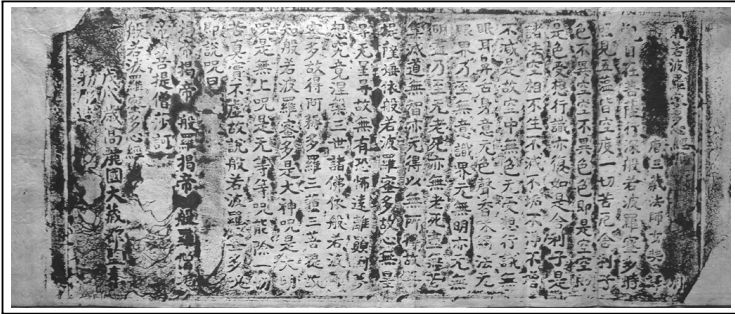 般若波羅蜜多心經
唐三藏法師玄奘譯
觀自在菩薩行深般若波羅蜜多時
照見五蘊皆空度一切苦厄舍利子
色不異空空不異色色即是空空即
是色受想行識亦復如是舍利子是
諸法空相不生不滅不垢不淨不增
不減是故空中無色无受想行識無
眼耳鼻舌身意无色聲香味觸法无
眼界乃至無意識界无無明亦无無
明盡乃至无老死亦無老死盡无苦
集滅道無智亦无得以無所得故菩
提薩埵依般若波羅蜜多故心無罣
礙无罣导故無有恐怖遠離顛倒夢
想究竟涅槃三世諸佛依般若波羅
蜜多故得阿耨多羅三藐三菩提故
知般若波羅蜜多是大神呪是大明
呪是無上呪是无等等呪能除一切
苦真實不虛故說般若波羅蜜多呪
即說呪曰
揭帝揭帝 般羅揭帝 般羅僧揭帝
菩提僧莎訶
般若波羅蜜多心經
戊戌歲高麗國大藏都監奉
勅雕造